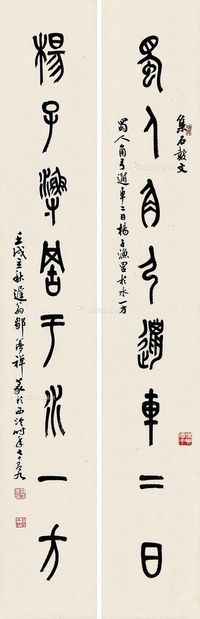 集石鼓文
蜀人角弓邋車二日
蜀人角弓邋車二日楊子漁罟於水一方
楊子漁罟于水一方
壬戌立秋遲翁鄒夢禪篆於西泠時年七十九